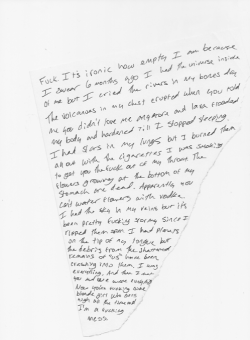 Fuck. It's ironic how empty I am because
I swear 6 months ago I had the universe inside
of me but I cried the rivers in my bones dry
The volcanoes in my chest erupted when you told
me you didn't love me anymore and lava flooded
my body and hardened till I stopped sleeping.
I had stars in my lungs but I burned them
all out with the cigarettes I was smoking
to get you the fuck out of my throat The
flowers growing at the bottom of my
stomach are dead. Apparently you
can't water flowers with vodka.
I had the sky in my veins but it's
been pretty fucking stormy since I
ripped them open I had planets
on the tip of my tongue but
the debris from the shattered
remains of "us" have been
crashing into them. I was
everything. And then I met
you and there were
Now you're fucking some
blonde girl who
night all the time and
I'm a fucking
mess